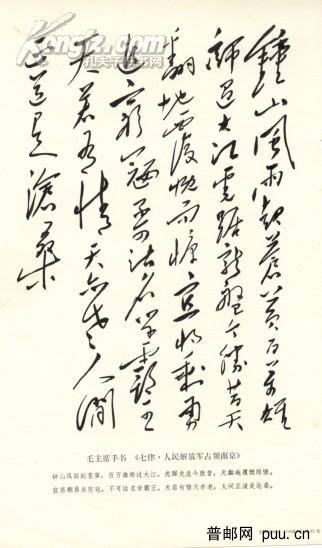 kongfz.com
孔夫子旧书网
鍾山風雨起蒼黃百萬雄
師過大江虎踞龍盤今勝昔天
翻地覆慨而慷宜將剩勇
追窮寇不可沽名學霸王
天若有情天亦老人間
正道是滄桑
毛主席手书 《七律·人民解放军占领南京》
钟山风雨起苍黄,百万雄师过大江。虎踞龙盘今胜昔,天翻地覆慨而慷。
宜将剩勇追穷寇,不可沽名学霸王。天若有情天亦老,人间正道是沧桑。
普邮网 puu.cn